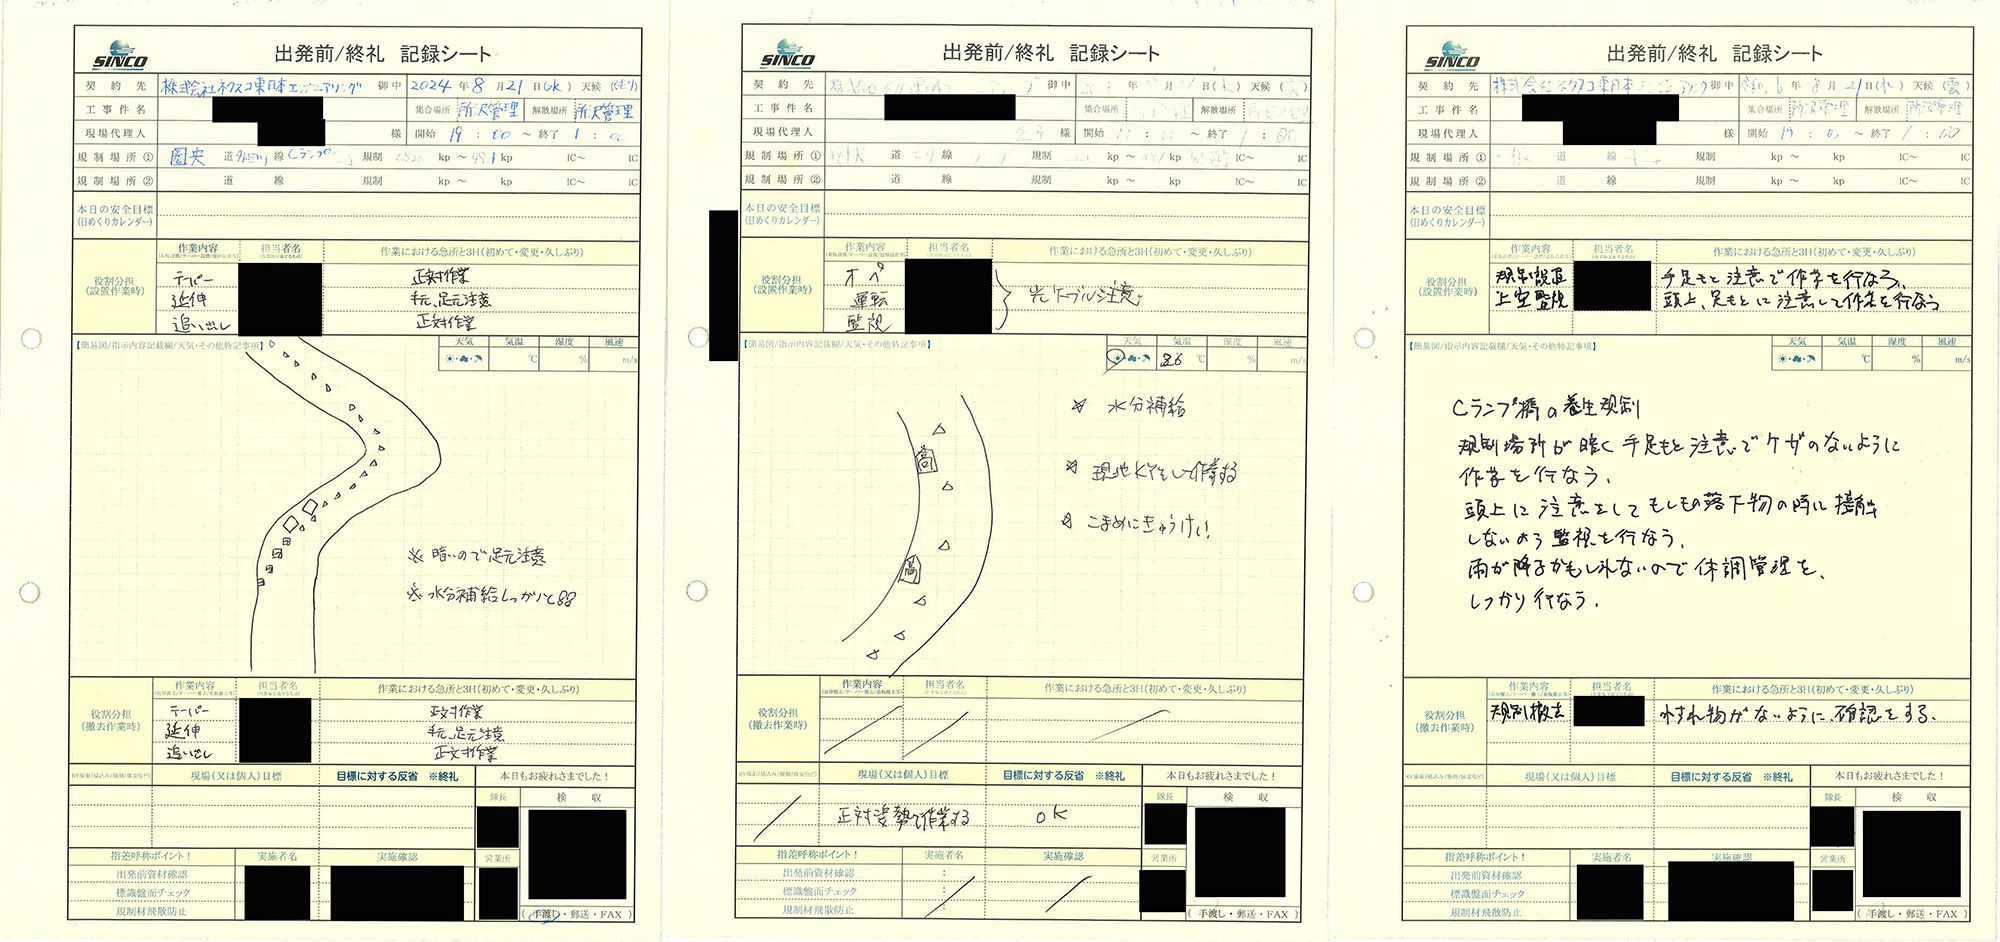 SINCO
出発前/終礼 記録シート
契約先 株式会社ネクスコ東日本エンジニアリング 御中 2024年8月21日(水) 天候
工事件名 集合場所 所沢管理 解散場所 所沢管理
現場代理人 様 開始 19:00～終了 1:00
規制場所① 圏央 道 外回り 線 Cランプ 規制 kp～ kp IC～ IC
規制場所② 道 線 規制 kp～ kp IC～ IC
本日の安全目標
(日めくりカレンダー)
作業内容 担当者名 作業における急所と3H(初めて・変更・久しぶり)
役割分担
(設置作業時)
テーパー 正対作業
延伸 手元、足元注意
追い出し 正対作業
【簡易図/指示内容記載欄/天気・その他特記事項】
天気 気温 湿度 風速
℃ % m/s
※ 暗いので足元注意
※ 水分補給しっかりと
作業内容 担当者名 作業における急所と3H(初めて・変更・久しぶり)
役割分担
(撤去作業時)
テーパー 正対作業
延伸 手元、足元注意
追い出し 正対作業
現場(又は個人)目標 目標に対する反省 ※終礼 本日もお疲れさまでした！
隊長 検収
指差呼称ポイント！ 実施者名 実施確認 営業所
出発前資材確認
標識盤面チェック
規制材飛散防止
(手渡し・郵送・FAX)
SINCO
出発前/終礼 記録シート
契約先 御中 年 日(水) 天候
工事件名 集合場所 解散場所
現場代理人 様 開始 ～終了 1:00
規制場所① 道 線 規制 kp～ IC～ IC
規制場所② 道 線 規制 kp～ kp IC～ IC
本日の安全目標
(日めくりカレンダー)
作業内容 担当者名 作業における急所と3H(初めて・変更・久しぶり)
役割分担
(設置作業時)
オペ
運転 光ケーブル注意。
監視
【簡易図/指示内容記載欄/天気・その他特記事項】
天気 気温 湿度 風速
26 ℃ % m/s
☆ 水分補給
高
☆ 現地KYをして作業する
☆ こまめにきゅうけい!
高
作業内容 担当者名 作業における急所と3H(初めて・変更・久しぶり)
役割分担
(撤去作業時)
現場(又は個人)目標 目標に対する反省 ※終礼 本日もお疲れさまでした！
隊長 検収
正対姿勢で作業する OK
指差呼称ポイント！ 実施者名 実施確認 営業所
出発前資材確認
標識盤面チェック
規制材飛散防止
(手渡し・郵送・FAX)
SINCO
出発前/終礼 記録シート
契約先 株式会社ネクスコ東日本エンジニアリング 御中 6年8月21日(水) 天候(雲)
工事件名 集合場所 所沢管理 解散場所 所沢管理
現場代理人 様 開始 19:00～終了 1:00
規制場所① 一般 道 線 規制 kp～ kp IC～ IC
規制場所② 道 線 規制 kp～ kp IC～ IC
本日の安全目標
(日めくりカレンダー)
作業内容 担当者名 作業における急所と3H(初めて・変更・久しぶり)
役割分担
(設置作業時)
規制設置 手足もと注意で作業を行なう。
上空監視 頭上、足もとに注意して作業を行なう
【簡易図/指示内容記載欄/天気・その他特記事項】
天気 気温 湿度 風速
℃ % m/s
Cランプ橋の養生規制
規制場所が暗く手足もと注意でケガのないように
作業を行なう。
頭上に注意をしてもしもの落下物の時に接触
しないよう監視を行なう。
雨が降るかもしれないので体調管理を、
しっかり行なう。
作業内容 担当者名 作業における急所と3H(初めて・変更・久しぶり)
役割分担
(撤去作業時)
規制撤去 わすれ物がないように、確認をする。
現場(又は個人)目標 目標に対する反省 ※終礼 本日もお疲れさまでした！
隊長 検収
指差呼称ポイント！ 実施者名 実施確認 営業所
出発前資材確認
標識盤面チェック
規制材飛散防止
(手渡し・郵送・FAX)